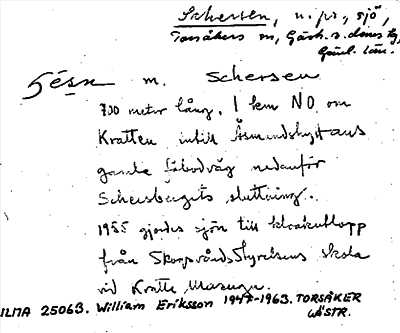 Schersen, n. pr., sjö,
Torsåkers sn, Gästr. ö. doms. hd,
Gävl. län.
m. Schersen
700 meter lång, 1 km NO om
Kratten intill Åsmundshyttans
gamla fäbodväg nedanför
Schersbergets sluttning.
1955 gjordes sjön till kloakutlopp
från Skogsvårdsstyrelsens skola
vid Kratte Masugn.
ULMA 25063. William Eriksson 1947-1963. TORSÅKER
GÄSTR.